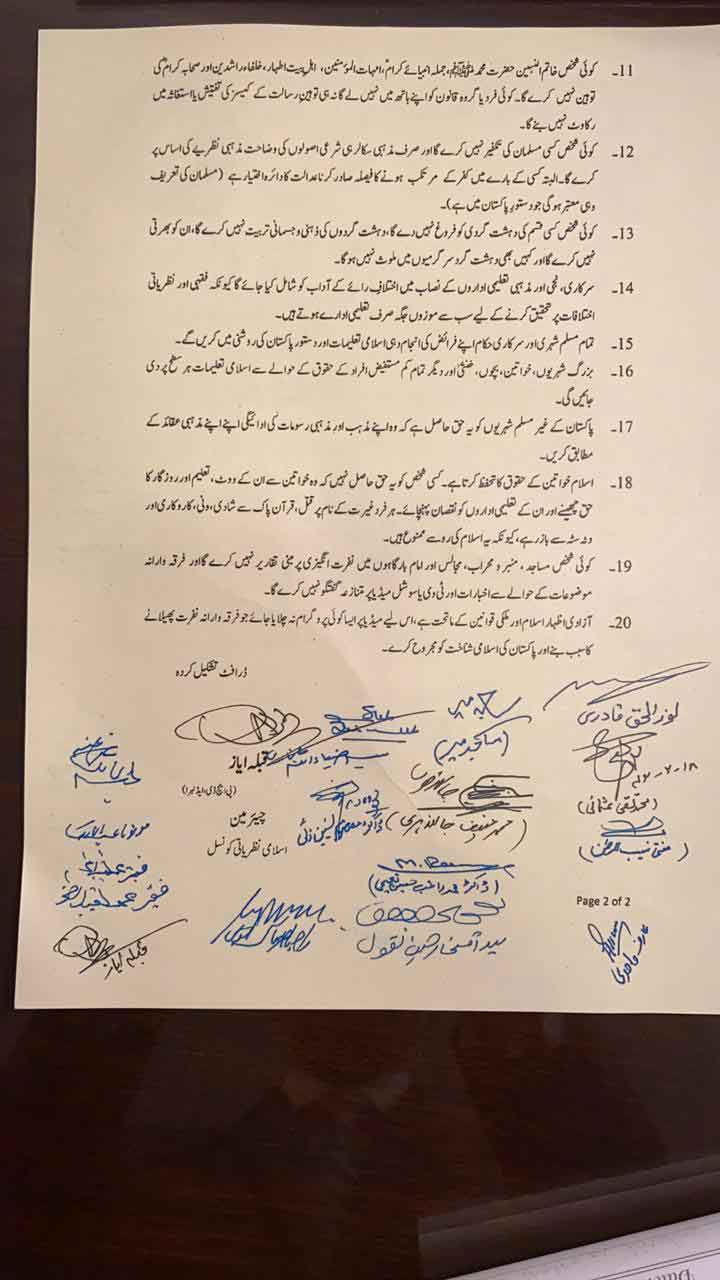 11۔ کوئی شخص خاتم النبیین حضرت محمد ﷺ، جملہ انبیائے کرامؑ، امہات المؤمنین، اہل بیت اطہار، خلفاء راشدین اور صحابہ کرامؓ کی
توہین نہیں کرے گا۔ کوئی فرد یا گروہ قانون کو اپنے ہاتھ میں نہیں لے گا نہ ہی توہین رسالت کے کیسز کی تفتیش یا استغاثہ میں
رکاوٹ نہیں بنے گا۔
12۔ کوئی شخص کسی مسلمان کی تکفیر نہیں کرے گا اور صرف مذہبی سکالر ہی شرعی اصولوں کی وضاحت مذہبی نظریے کی اساس پر
کرے گا۔ البتہ کسی کے بارے میں کفر کے مرتکب ہونے کا فیصلہ صادر کرنا عدالت کا دائرہ اختیار ہے (مسلمان کی تعریف
وہی معتبر ہوگی جو دستور پاکستان میں ہے)۔
13۔ کوئی شخص کسی قسم کی دہشت گردی کو فروغ نہیں دے گا، دہشت گردوں کی ذہنی و جسمانی تربیت نہیں کرے گا، ان کو بھرتی
نہیں کرے گا اور کہیں بھی دہشت گرد سرگرمیوں میں ملوث نہیں ہوگا۔
14۔ سرکاری، نجی اور مذہبی تعلیمی اداروں کے نصاب میں اختلاف رائے کے آداب کو شامل کیا جائے گا کیونکہ فقہی اور نظریاتی
اختلافات پر تحقیق کرنے کے لیے سب سے موزوں جگہ صرف تعلیمی ادارے ہوتے ہیں۔
15۔ تمام مسلم شہری اور سرکاری حکام اپنے فرائض کی انجام دہی اسلامی تعلیمات اور دستور پاکستان کی روشنی میں کریں گے۔
16۔ بزرگ شہریوں، خواتین، بچوں، خنثیٰ اور دیگر تمام کم مستفیض افراد کے حقوق کے حوالے سے اسلامی تعلیمات ہر سطح پر دی
جائیں گی۔
17۔ پاکستان کے غیر مسلم شہریوں کو یہ حق حاصل ہے کہ وہ اپنے مذہب اور مذہبی رسومات کی ادائیگی اپنے اپنے مذہبی عقائد کے
مطابق کریں۔
18۔ اسلام خواتین کے حقوق کا تحفظ کرتا ہے۔ کسی شخص کو یہ حق حاصل نہیں کہ وہ خواتین سے ان کے ووٹ، تعلیم اور روزگار کا
حق چھینے اور ان کے تعلیمی اداروں کو نقصان پہنچائے۔ ہر فرد غیرت کے نام پر قتل، قرآن پاک سے شادی، ونی، کاروکاری اور
وٹہ سٹہ سے باز رہے، کیونکہ یہ اسلام کی رو سے ممنوع ہیں۔
19۔ کوئی شخص مساجد، منبر و محراب، مجالس اور امام بارگاہوں میں نفرت انگیزی پر مبنی تقاریر نہیں کرے گا اور فرقہ وارانہ
موضوعات کے حوالے سے اخبارات اور ٹی وی یا سوشل میڈیا پر متنازعہ گفتگو نہیں کرے گا۔
20۔ آزادی اظہار اسلام اور ملکی قوانین کے ماتحت ہے، اس لیے میڈیا پر ایسا کوئی پروگرام نہ چلایا جائے جو فرقہ وارانہ نفرت پھیلانے
کا سبب بنے اور پاکستان کی اسلامی شناخت کو مجروح کرے۔
ڈرافٹ تشکیل کردہ
نور الحق قادری
(ساجد میر)
قبلہ ایاز
(پی ایچ ڈی، ایڈنبرا)
چیئرمین
اسلامی نظریاتی کونسل
(محمد تقی عثمانی)
(محمد حنیف جالندھری)
(مفتی منیب الرحمٰن)
(ڈاکٹر محمد راغب حسین نعیمی)
سید افتخار حسین نقوی
Page 2 of 2
قبلہ ایاز